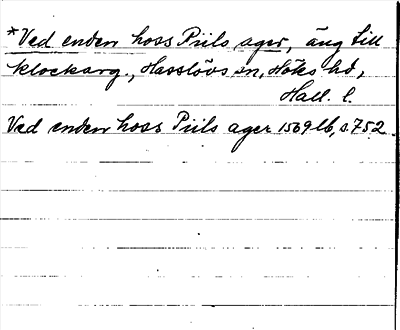 *Ved enden hoss Piils ager, äng till
klockarg., Hasslövs sn, Höks hd,
Hall. l.
Ved enden hoss Piils ager 1569 lb, s. 752.